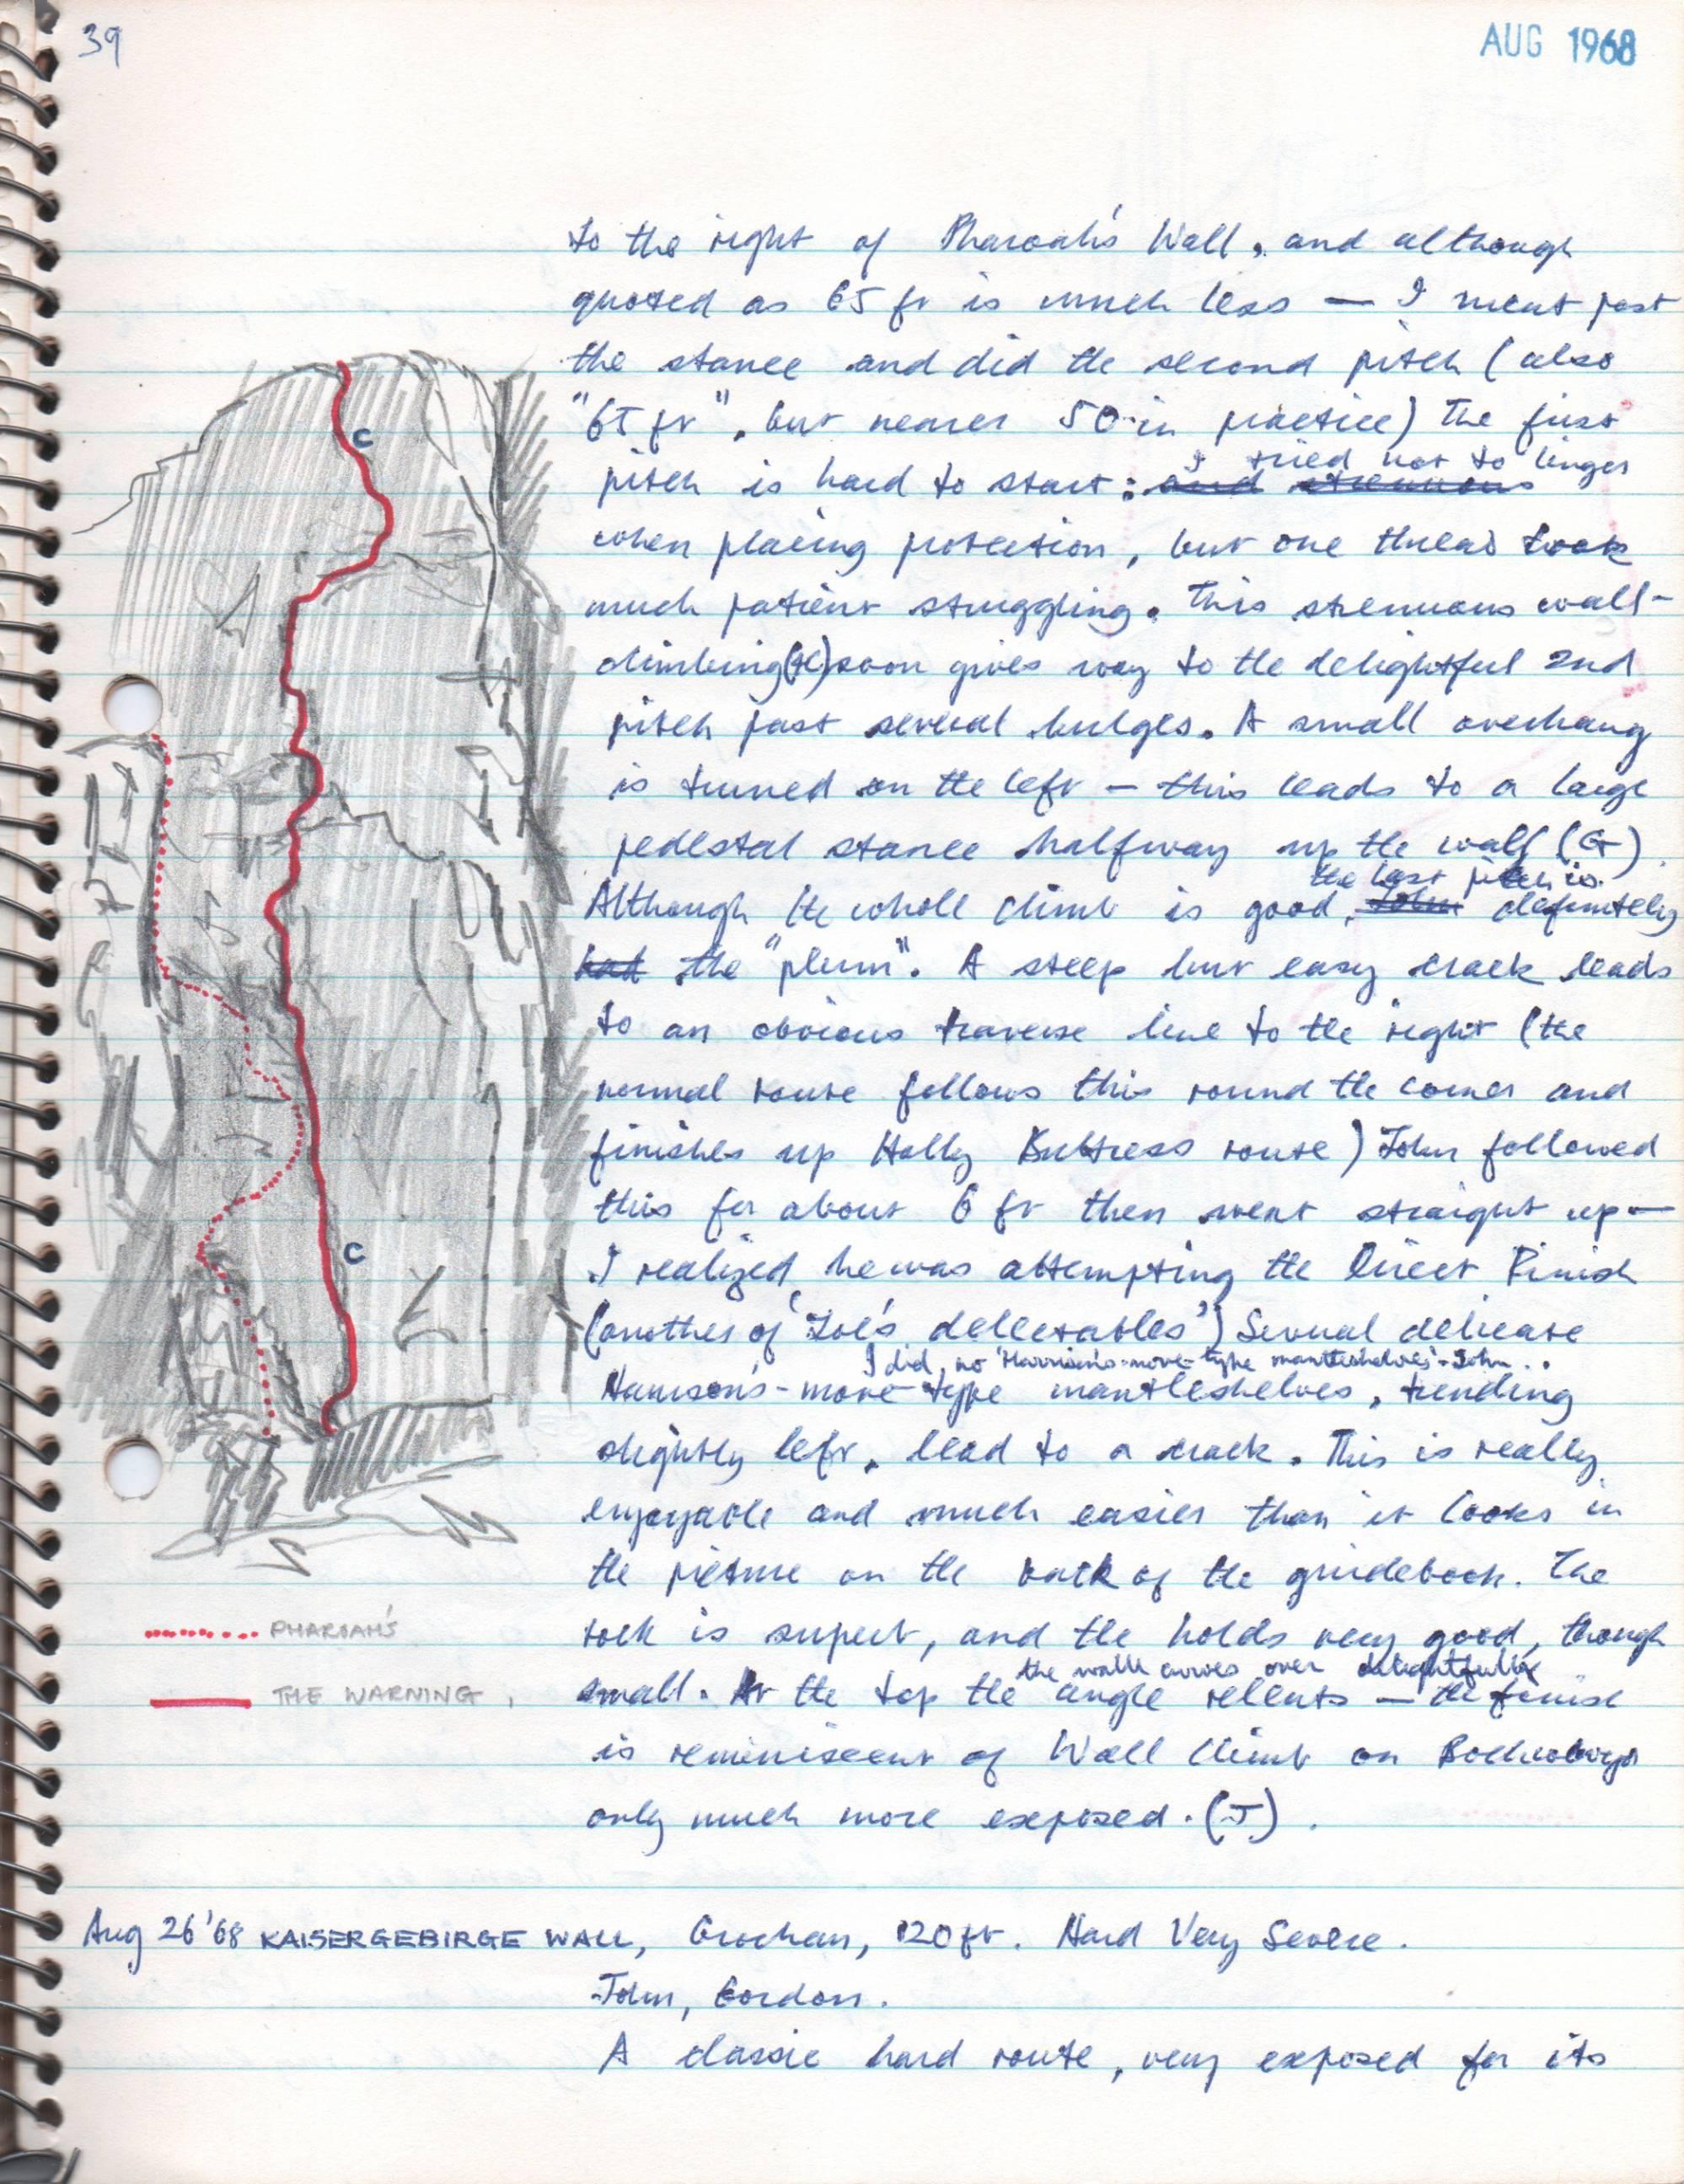 39
AUG 1968
to the right of Pharoah's Wall, and although
quoted as 65 ft is much less — I went past
the stance and did the second pitch (also
"65 ft", but nearer 50 in practice) The first
pitch is hard to start: and strenuous I tried not to linger
when placing protection, but one thread took
much patient struggling. This strenuous wall-
climbing soon gives way to the delightful 2nd
pitch past several bulges. A small overhang
is turned on the left — this leads to a large
pedestal stance halfway up the wall (G).
Although the whole climb is good, John the last pitch is definitely
had the "plum". A steep but easy crack leads
to an obvious traverse line to the right (the
normal route follows this round the corner and
finishes up Holly Buttress route) John followed
this for about 6 ft then went straight up —
I realized he was attempting the Direct Finish
(another of 'Zoe's delectables') Several delicate
I did no 'Harrison's-move-type mantleshelves' - John..
Harrison's-move-type mantleshelves, trending
slightly left, lead to a crack. This is really
enjoyable and much easier than it looks in
the picture on the back of the guidebook. The
rock is superb, and the holds very good, though
small. At the top the angle relents — the finish
the wall curves over delightfully
is reminiscent of Wall Climb on
only much more exposed. (J).
C
C
PHAROAH'S
THE WARNING
Aug 26 '68 KAISERGEBIRGE WALL, Crochan, 120 ft. Hard Very Severe.
John, Gordon.
A classic hard route, very exposed for its